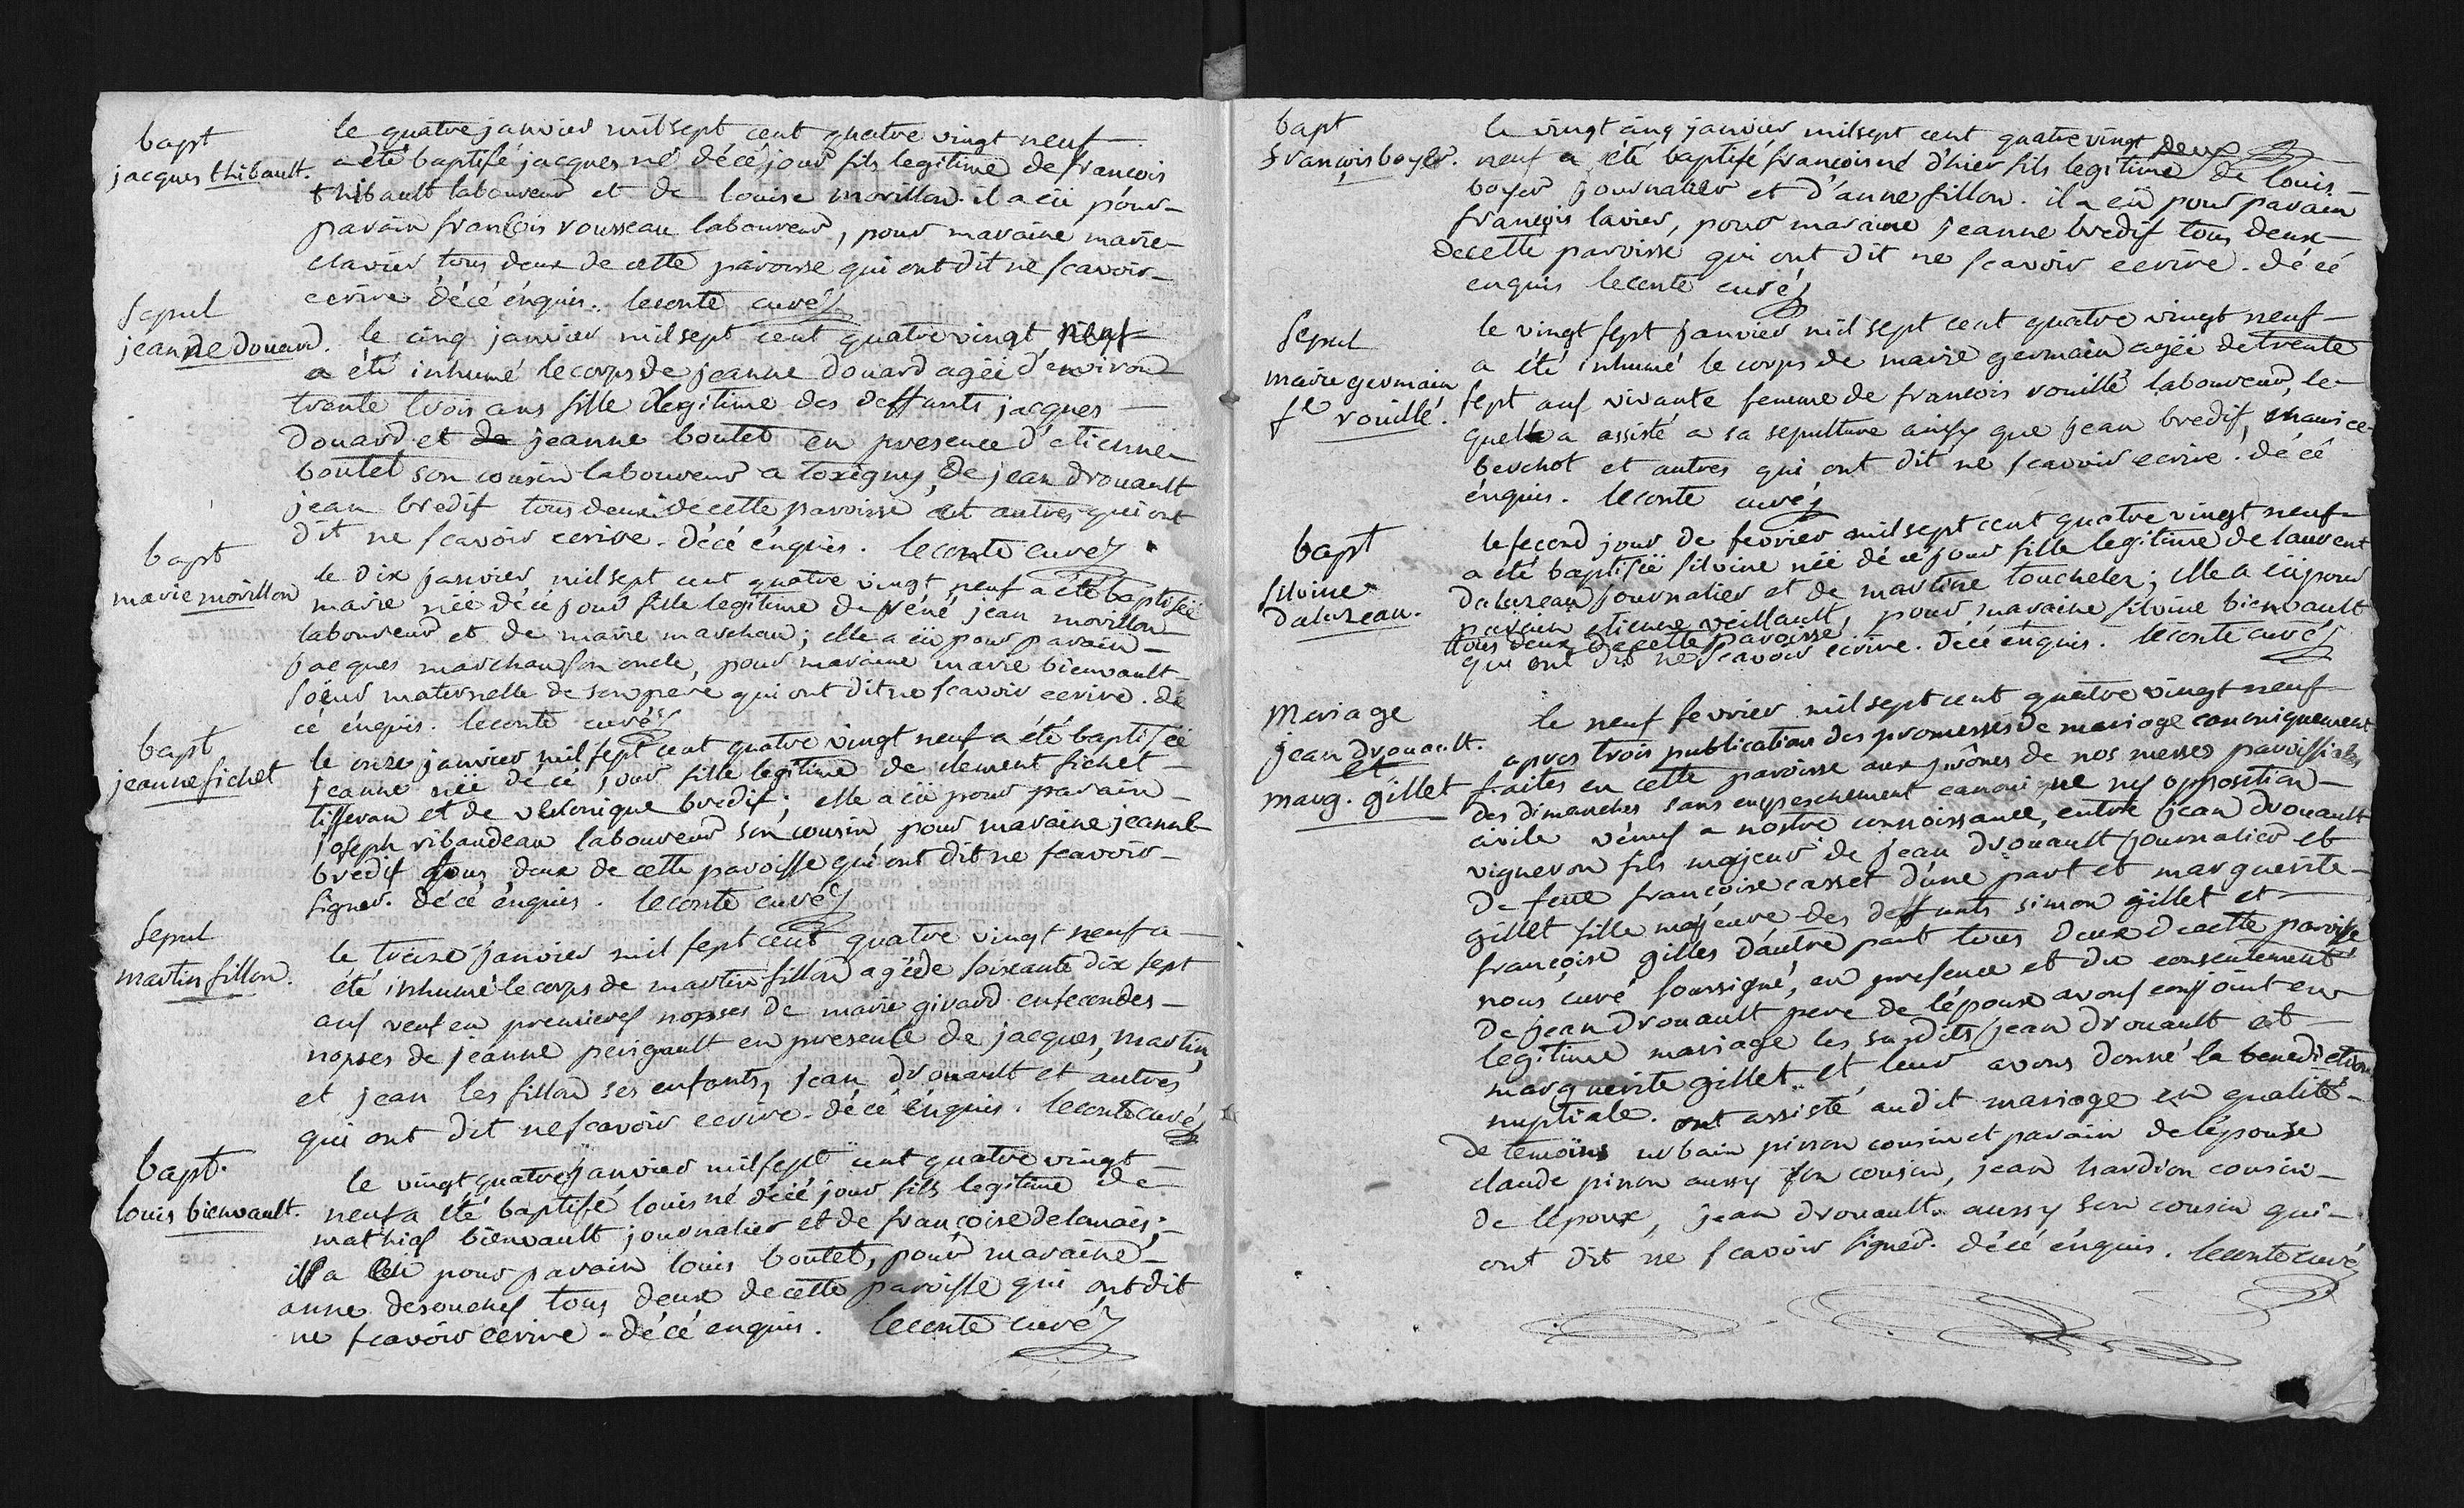 bapt
jacques thibault.
le quatre janvier mil sept cent quatre vingt neuf
a été baptisé jacques né décé jour fils legitime de francois
thibault laboureur et de louise morillon. il a eü pour
parain francois rousseau laboureur, pour maraine marie
clavier tous deux de cette paroisse qui ont dit ne scavoir
ecrire décé énquis. leconte curé
sepul
jeanne douard.
le cinq janvier mil sept cent quatre vingt neuf
a été inhumé le corps de jeanne douard agéë d'environ
trente trois ans fille legitime des deffunts jacques
douard et de jeanne boutet en presence d'etienne
boutet son cousin laboureur a loxigny, de jean drouault
jean bredif tous deux de cette paroisse et autres qui ont
dit ne scavoir ecrire. décé énquis. leconte curé
bapt
marie morillon
le dix janvier mil sept cent quatre vingt neuf a été baptiséë
marie néë décé jour fille legitime de réné jean morillon
laboureur et de marie marchau; elle a eü pour parain
jacques marchau son oncle, pour maraine marie bienvault
soeur maternelle de son pere qui ont dit ne scavoir ecrire. dé
cé énquis. leconte curé
bapt
jeanne fichet
le onze janvier mil sept cent quatre vingt neuf a été baptiséë
jeanne néë décé jour fille legitime de clement fichet
tisseran et de véronique bredif; elle a eü pour parain
joseph ribaudeau laboureur son cousin pour maraine jeanne
bredif tous deux de cette paroisse qui ont dit ne scavoir
signer. décé énquis. leconte curé
sepul
martin fillon.
le treize janvier mil sept cent quatre vingt neuf a
été inhumé le corps de martin fillon agé de soixante dix sept
ans veuf en premieres nopses de marie girard en secondes
nopses de jeanne perigault en presence de jacques, martin,
et jean les fillon ses enfants, jean drouault et autres
qui ont dit ne scavoir ecrire. décé énquis. leconte curé
bapt.
louis bienvault.
le vingt quatre janvier mil sept cent quatre vingt
neuf a été baptisé louis né décé jour fils legitime de
mathias bienvault journalier et de françoise delanais;
il a eü pour parain louis boutet, pour maraine
anne desouches tous deux de cette paroisse qui ont dit
ne scavoir ecrire. décé enquis. leconte curé
bapt
françois boyer.
le vingt cinq janvier mil sept cent quatre vingt deux
neuf a été baptisé francois né d'hier fils legitime de louis
boyer journalier et d'anne fillon. il a eü pour parain
françois lavier, pour maraine jeanne bredif tous deux
de cette paroisse qui ont dit ne scavoir ecrire. décé
enquis leconte curé
sepul
marie germain
fe rouillé.
le vingt sept janvier mil sept cent quatre vingt neuf
a été inhumé le corps de marie germain agéë de trente
sept ans vivante femme de francois rouillé laboureur, le
quel a assisté a sa sepulture ainsy que jean bredif, maurice
berchot et autres qui ont dit ne scavoir ecrire. décé
énquis. leconte curé
bapt
silvine
daluzeau.
le second jour de fevrier mil sept cent quatre vingt neuf
a été baptiséë silvine néë décé jour fille legitime de laurent
daluzeau journalier et de martine toucheler; elle a eü pour
parain etienne veillault, pour maraine silvine bienvault
tous deux de cette paroisse
qui ont dit ne scavoir ecrire. décé énquis. leconte curé
Mariage
jean drouault.
et
marg. gillet
le neuf fevrier mil sept cent quatre vingt neuf
apres trois publications des promesses de mariage canoniquement
faites en cette paroisse aux prônes de nos messes paroissiales
des dimanches sans empeschement canonique ny opposition
civile venus a nostre connoissance, entre jean drouault
vigneron fils majeur de jean drouault journalier et
de feue françoise casset d'une part et marguerite
gillet fille majeure des deffunts simon gillet et
françoise gilles dautre part tous deux de cette paroisse
nous curé soussigné, en presence et du consentement
de jean drouault pere de lépoux avons conjoint en
legitime mariage les susdits jean drouault et
marguerite gillet et leur avons donné la benediction
nuptiale. ont assisté audit mariage en qualité
de temoins urbain pinon cousin et parain de lepouse
claude pinon aussy son cousin, jean hardion cousin
de lepoux, jean drouault aussy son cousin qui
ont dit ne scavoir signer. décé énquis. leconte curé